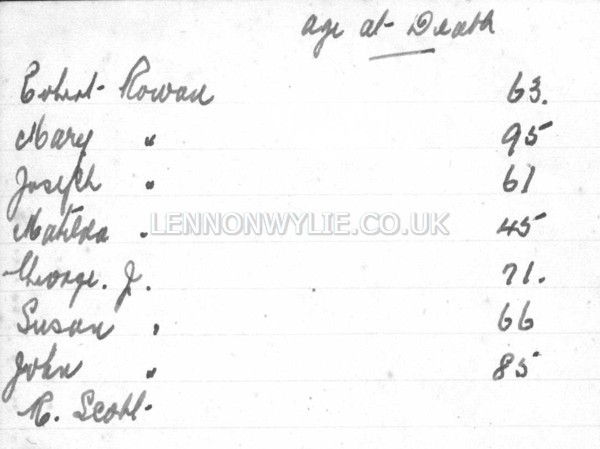 age at Death
Robert Rowan 63.
Mary " 95
Joseph " 61
Matilda " 45
LENNONWYLIE.CO.UK
George. J. 71.
Susan " 66
John " 85
R. Scott